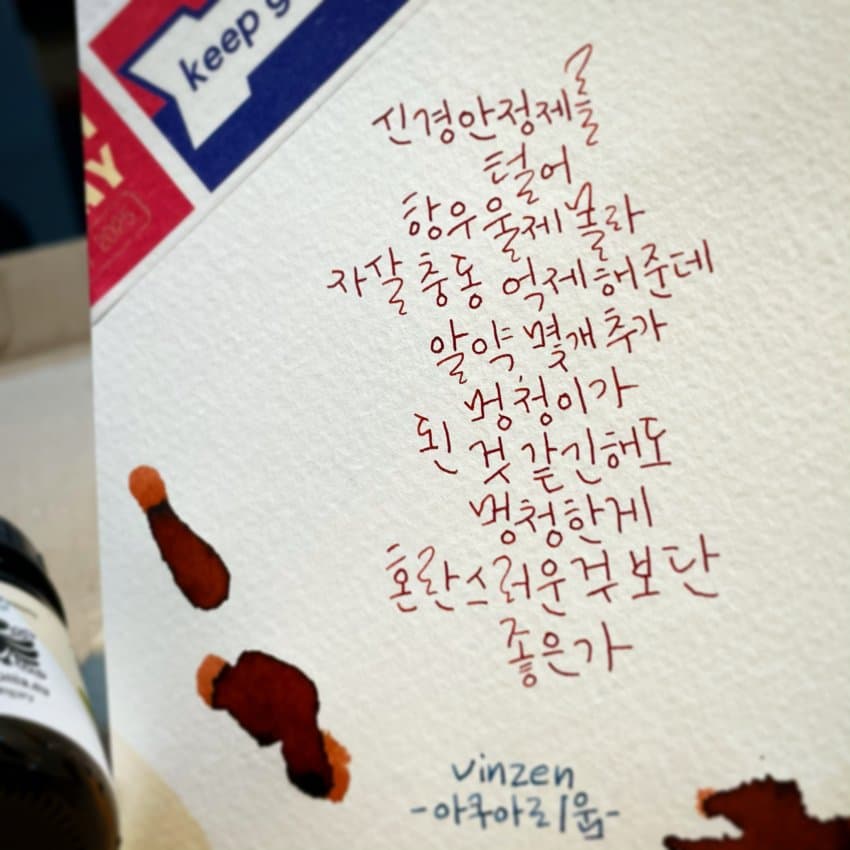 keep g
AY
2025
신경안정제를
털어
항우울제 몰라
자살 충동 억제해준데
알약 몇개 추가
멍청이가
된 것 같긴해도
멍청한게
혼란스러운거 보단
좋은가
vinzen
-아쿠아리움-